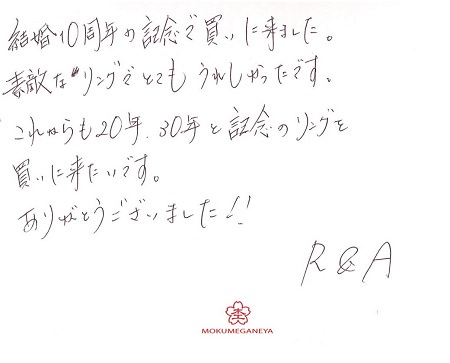 結婚10周年の記念で買いに来ました。
素敵なリングでとてもうれしかったです。
これからも20年、30年と記念のリングを
買いに来たいです。
ありがとうございました!!
R & A
MOKUMEGANEYA